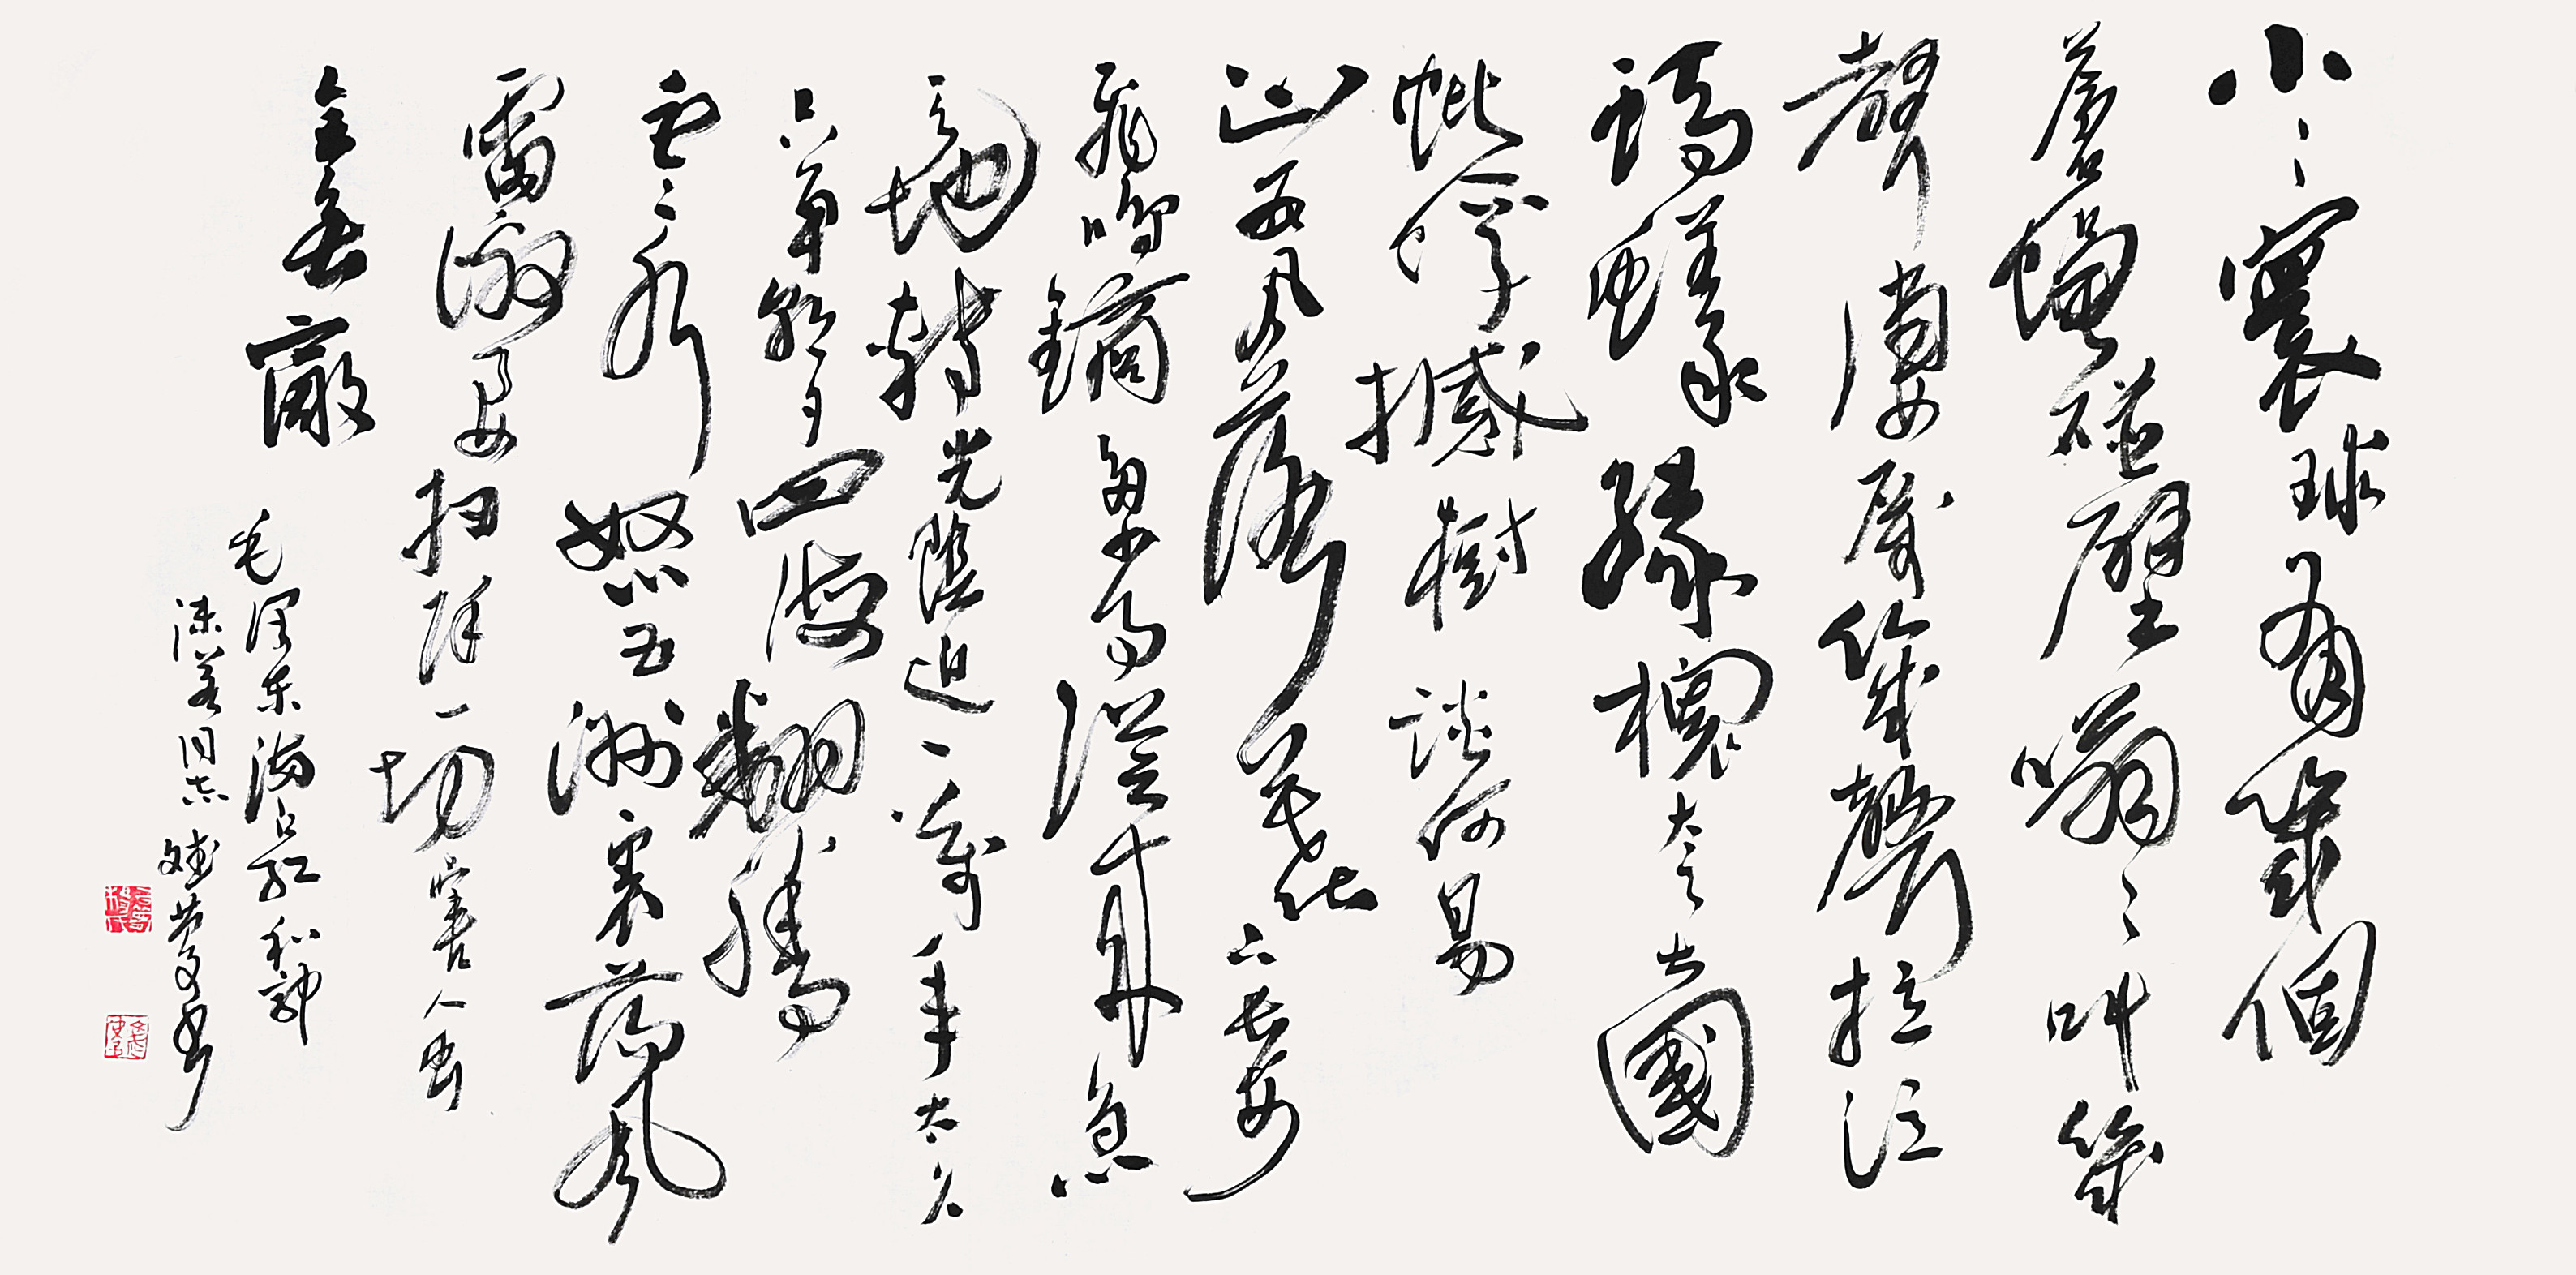 小〻寰球有幾個
蒼蠅碰壁嗡〻叫幾
聲凄厲幾聲抽泣
螞蟻緣槐夸大國
蚍蜉撼樹談何易
正西風落葉下長安
飛鳴鏑多少事從來急
天地轉光陰迫一萬年太久
只爭朝夕四海翻騰
雲水怒五洲震蕩風
雷激要掃除一切害人蟲
全無敵
毛澤東滿江紅和郭
沫若同志 書